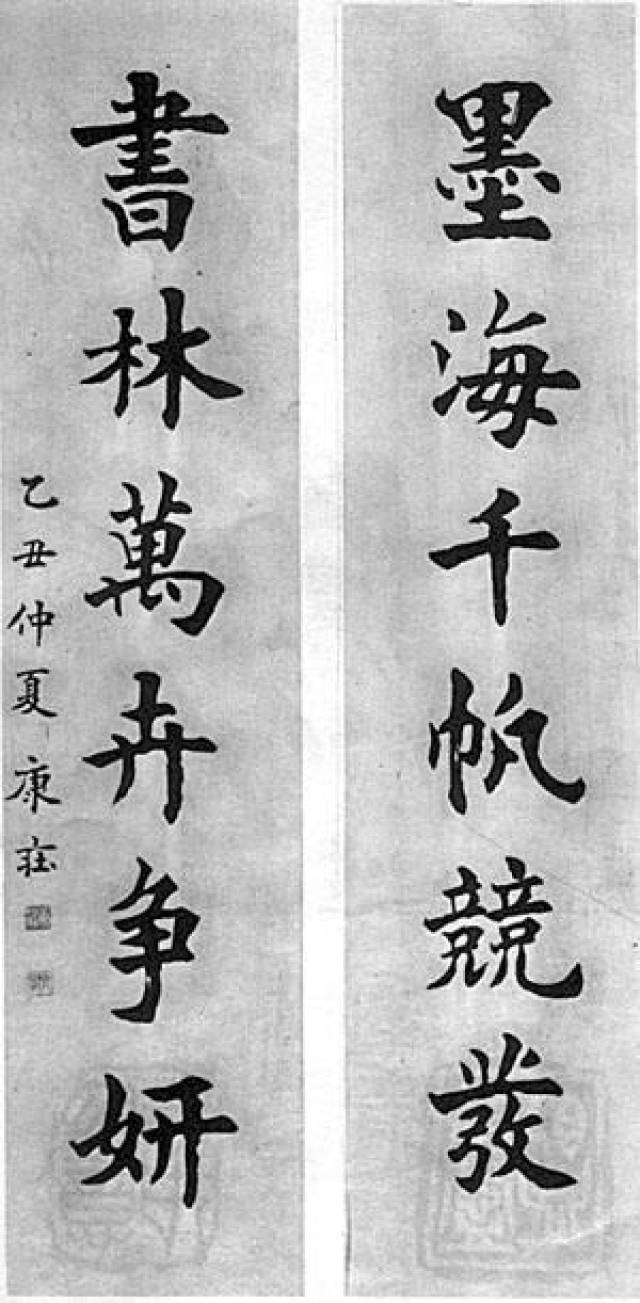 墨海千帆競發
書林萬卉争妍
乙丑仲夏康莊